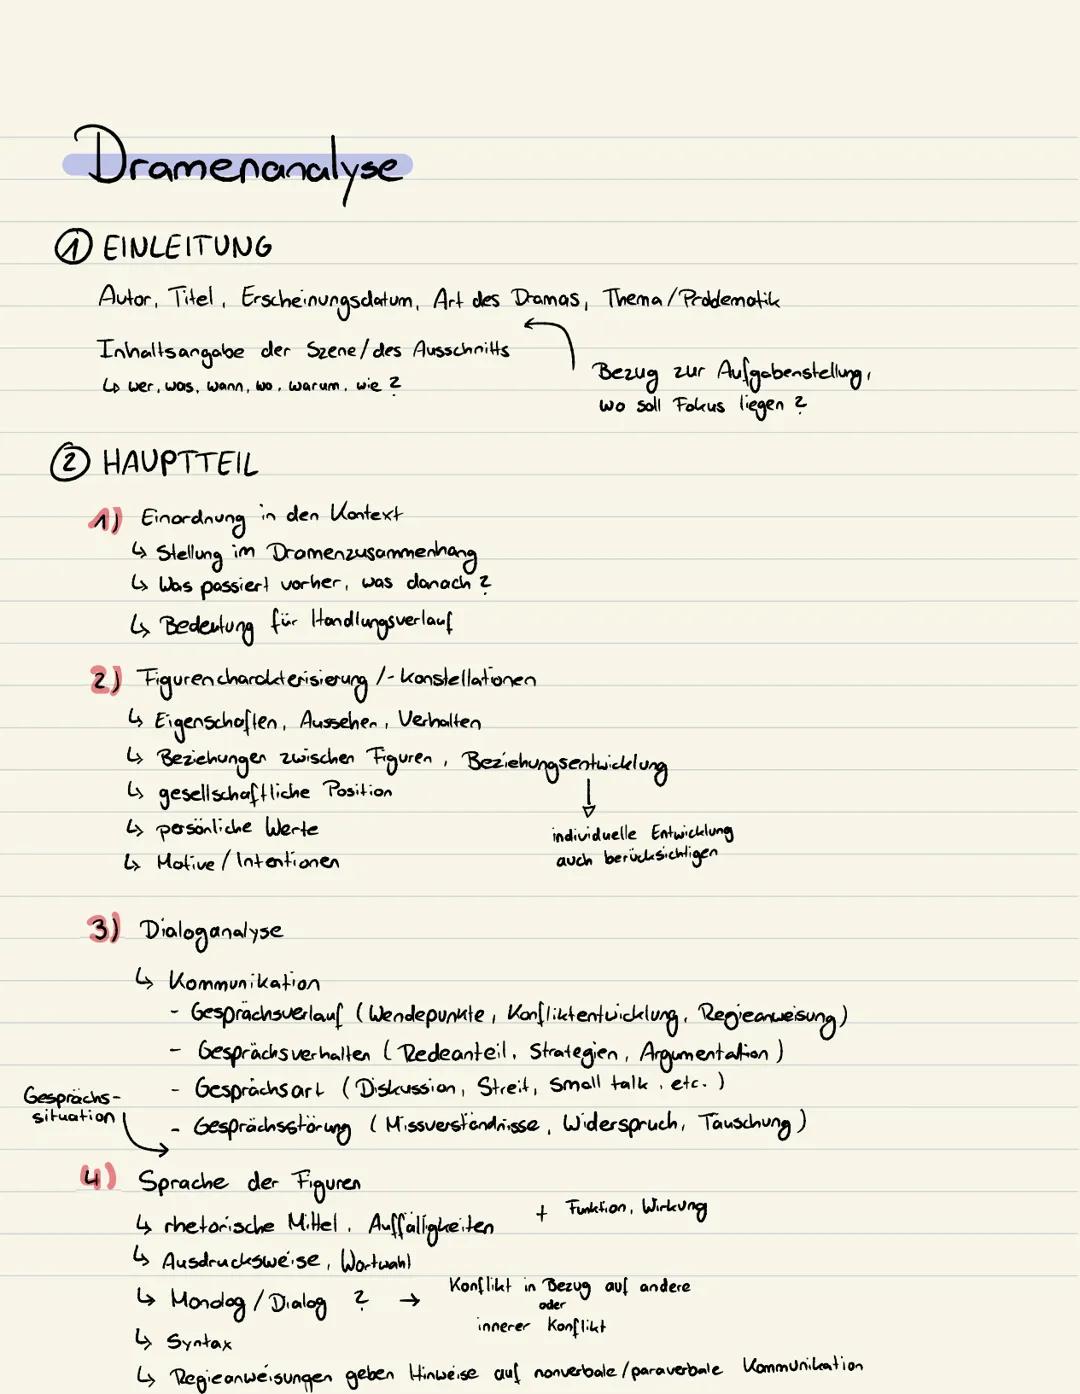 Dramenanalyse
① EINLEITUNG
Autor, Titel, Erscheinungsdatum, Art des Dramas, Thema/Problematik
Inhaltsangabe der Szene/des Ausschnitts
↳ wer, was, wann, wo, warum, wie?
Bezug zur Aufgabenstellung,
wo soll Fokus liegen?
② HAUPTTEIL
1) Einordnung in den Kontext
↳ Stellung im Dramenzusammenhang
↳ Was passiert vorher, was danach?
↳ Bedeutung für Handlungsverlauf
2) Figurencharakterisierung /-konstellationen
↳ Eigenschaften, Aussehen, Verhalten
↳ Beziehungen zwischen Figuren, Beziehungsentwicklung
↳ gesellschaftliche Position
↳ persönliche Werte
↳ Motive/Intentionen
individuelle Entwicklung
auch berücksichtigen
3) Dialoganalyse
↳ Kommunikation
- Gesprächsverlauf (Wendepunkte, Konfliktentwicklung, Regieanweisung)
- Gesprächsverhalten (Redeanteil, Strategien, Argumentation)
- Gesprächsart (Diskussion, Streit, Small talk, etc.)
- Gesprächsstörung (Missverständnisse, Widerspruch, Täuschung)
Gesprächs-
situation
4) Sprache der Figuren
↳ rhetorische Mittel, Auffälligkeiten + Funktion, Wirkung
↳ Ausdrucksweise, Wortwahl
↳ Monolog/Dialog? → Konflikt in Bezug auf andere
oder
innerer Konflikt
↳ Syntax
↳ Regieanweisungen geben Hinweise auf nonverbale/paraverbale Kommunikation